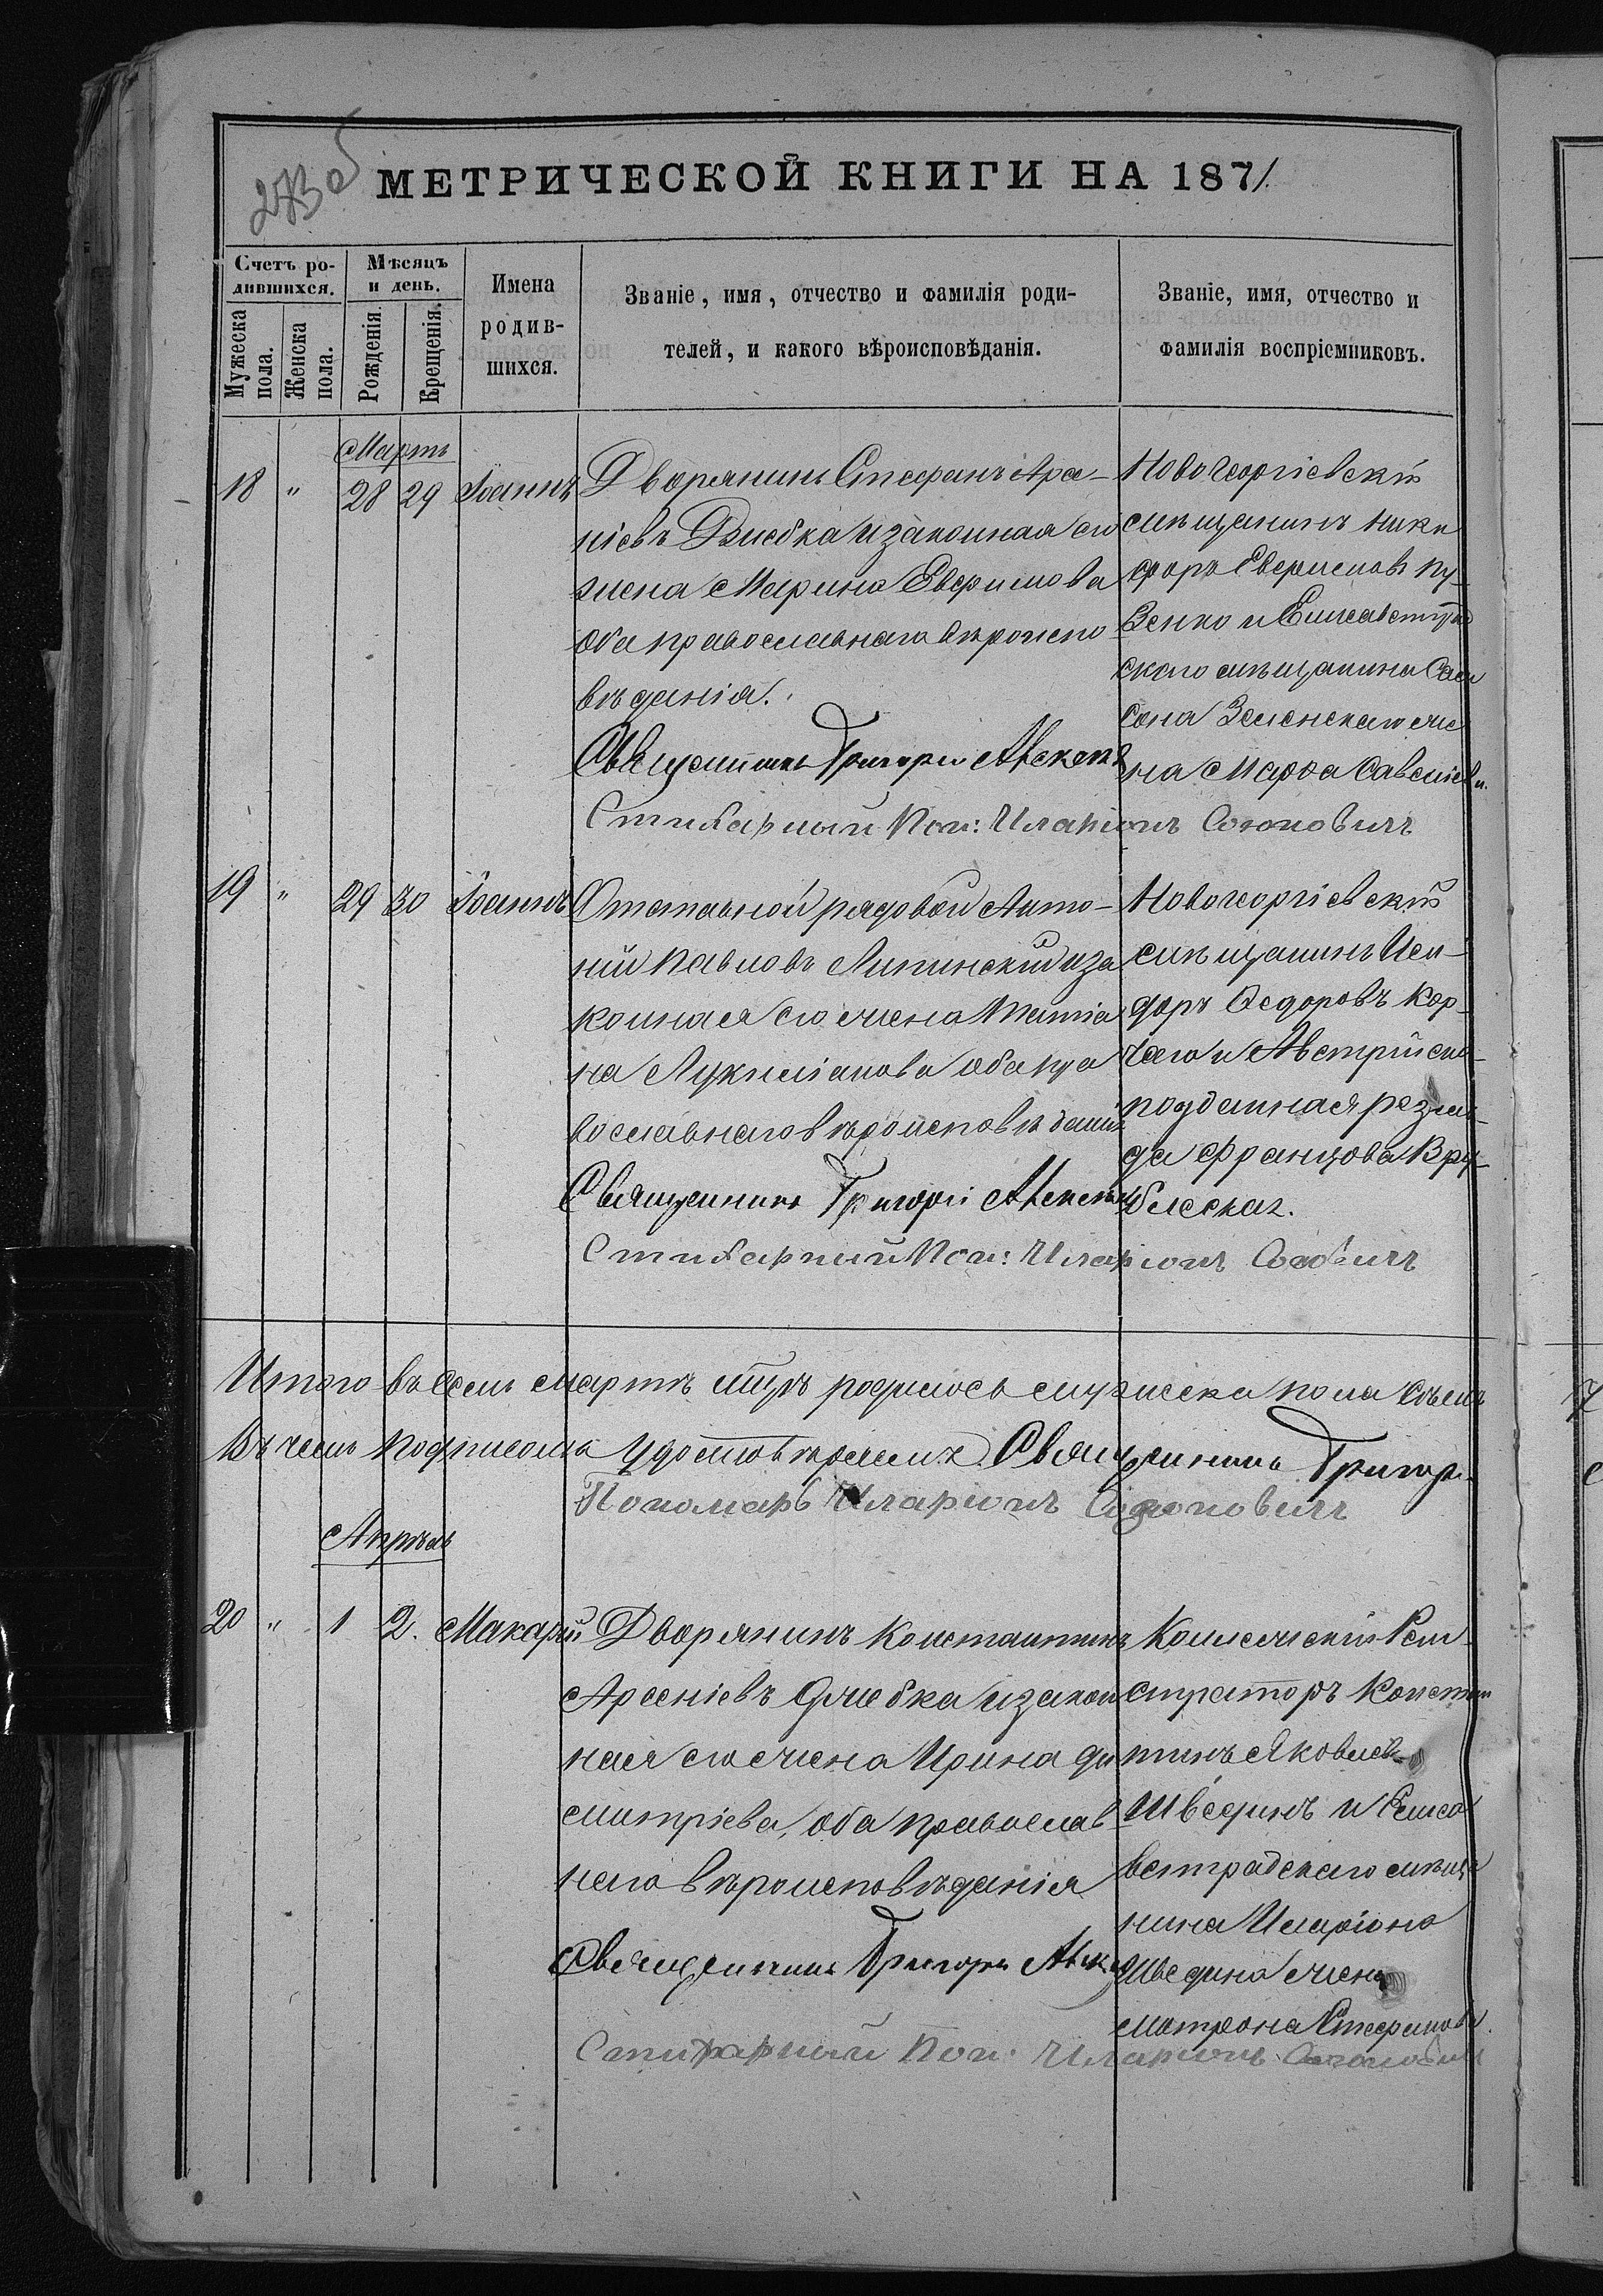 273 об
МЕТРИЧЕСКОЙ КНИГИ НА 1871.
Счетъ ро-
дившихся.
Мужеска
пола.
Женска
пола.
Мѣсяцъ
и день.
Рожденія.
Крещенія.
Имена
родив-
шихся.
Званіе, имя, отчество и фамилія роди-
телей, и какого вѣроисповѣданія.
Званіе, имя, отчество и
фамилія воспріемниковъ.
Мартъ
18 " 28 29 Іоаннъ
Дворянинъ Стефанъ
и законная его
жена Марина Евфимова
оба православнаго вѣроиспо
вѣданія.
Священникъ Григорій
Стихарный Пон: Иларіонъ
Новогеоргіевскій
мѣщанинъ Ники
форъ Евфимовъ Пу-
зенко и Елисаветград
скаго мѣщанина Сам
сона Зеленскаго же
на Марфа Савеліева.
19 " 29 30 Іоаннъ
Отставной рядовой Анто-
ній Павловъ Липинскій и за
конная его жена Татіа
на Лукиліанова оба пра
вославнаго вѣроисповѣданія
Священникъ Григорій
Стихарный Пон: Иларіонъ
Новогеоргіевскій
мѣщанинъ Иси-
доръ Ѳедоровъ Кор-
чаго и Австрійско-
подданная
да Францова Вру-
блеская.
Итого въ семъ мартѣ мѣцѣ родилось мужеска пола
Въ чемъ подписомъ удостовѣряемъ. Священникъ Григор.
Пономарь Иларіонъ
Апрѣль
20 " 1 2. Макарій
Дворянинъ Константинъ
Арсеніевъ и закон
ная его жена Ирина Ди
митріева, оба православ
наго вѣроисповѣданія
Священникъ Григорій
Стихарный Пон: Иларіонъ
Коллежскій Реги
страторъ Констан
тинъ Яковлевъ
Швединъ и Елиса
ветградскаго мѣща
нина Иларіона
Шведина жена
Матрона